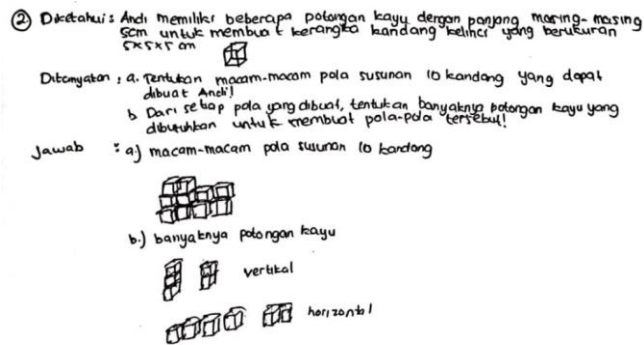 ② Diketahui : Andi memiliki beberapa potongan kayu dengan panjang masing-masing
5cm untuk membuat kerangka kandang kelinci yang berukuran
5x5x5 cm
Ditanyakan : a. Tentukan macam-macam pola susunan 10 kandang yang dapat
dibuat Andi!
b Dari setiap pola yang dibuat, tentukan banyaknya potongan kayu yang
dibutuhkan untuk membuat pola-pola tersebut!
Jawab : a.) macam-macam pola susunan 10 kandang
b.) banyaknya potongan kayu
vertikal
horizontal